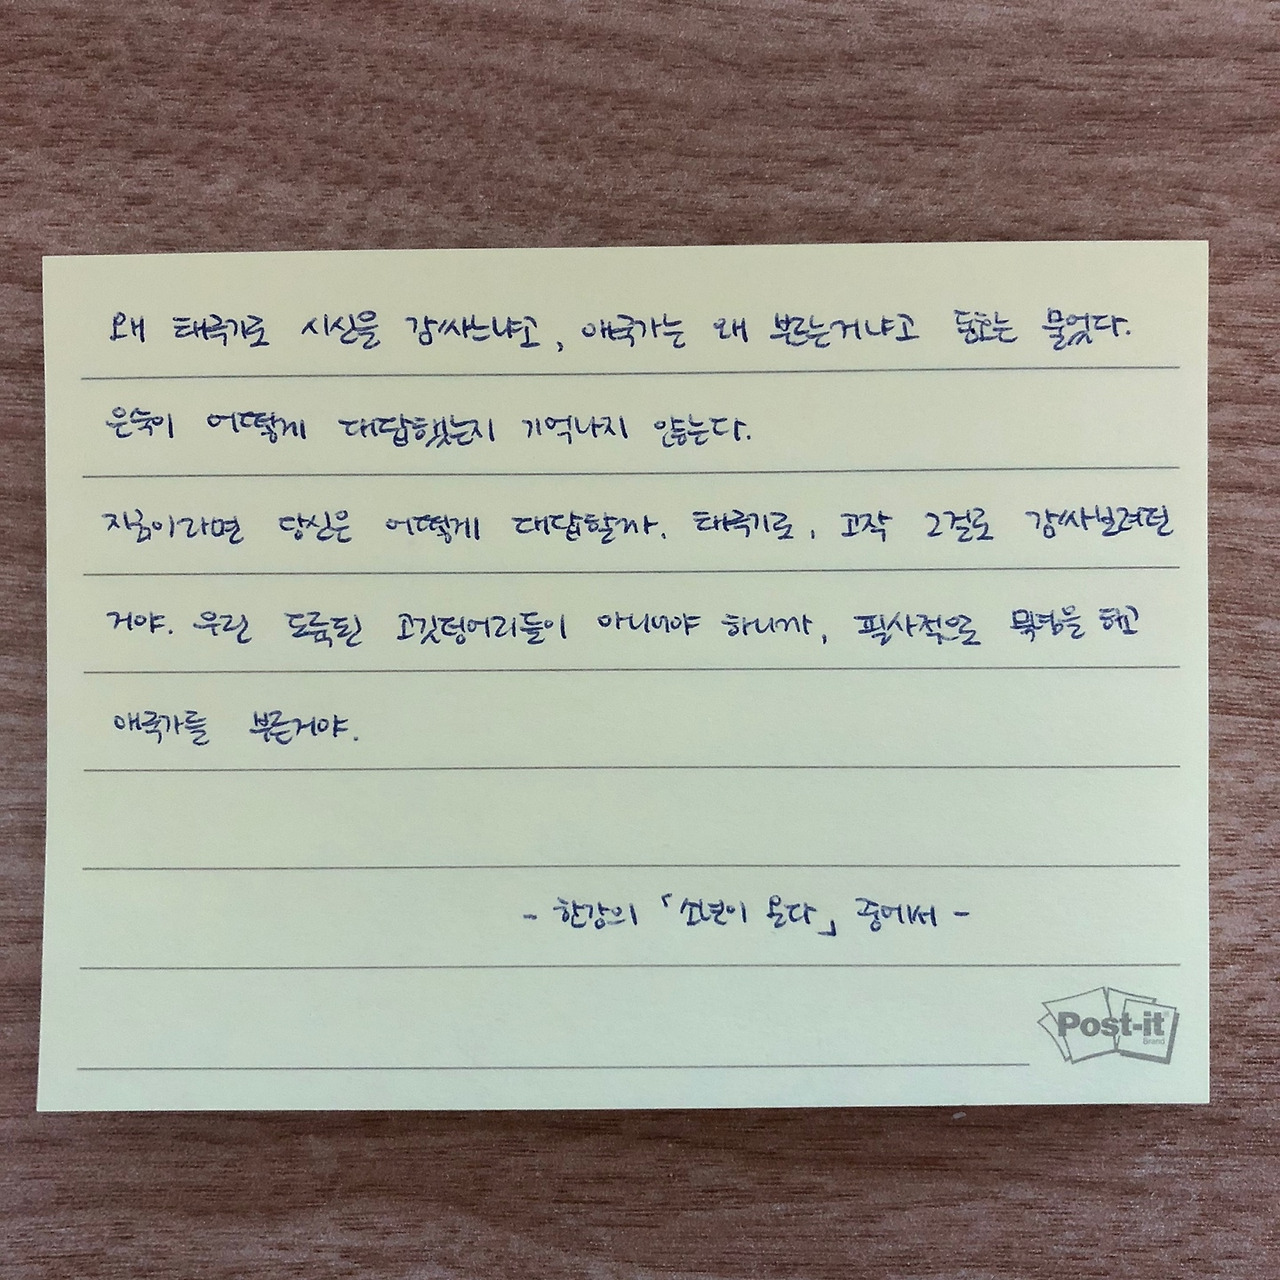 왜 태극기로 시신을 감싸느냐고, 애국가는 왜 부르는거냐고 동호는 물었다.
은숙이 어떻게 대답했는지 기억나지 않는다.
지금이라면 당신은 어떻게 대답할까. 태극기로, 고작 그걸로 감싸보려던
거야. 우린 도륙된 고깃덩어리들이 아니어야 하니까, 필사적으로 묵념을 하고
애국가를 부른거야.
- 한강의 「소년이 온다」 중에서 -
Post-it
Brand